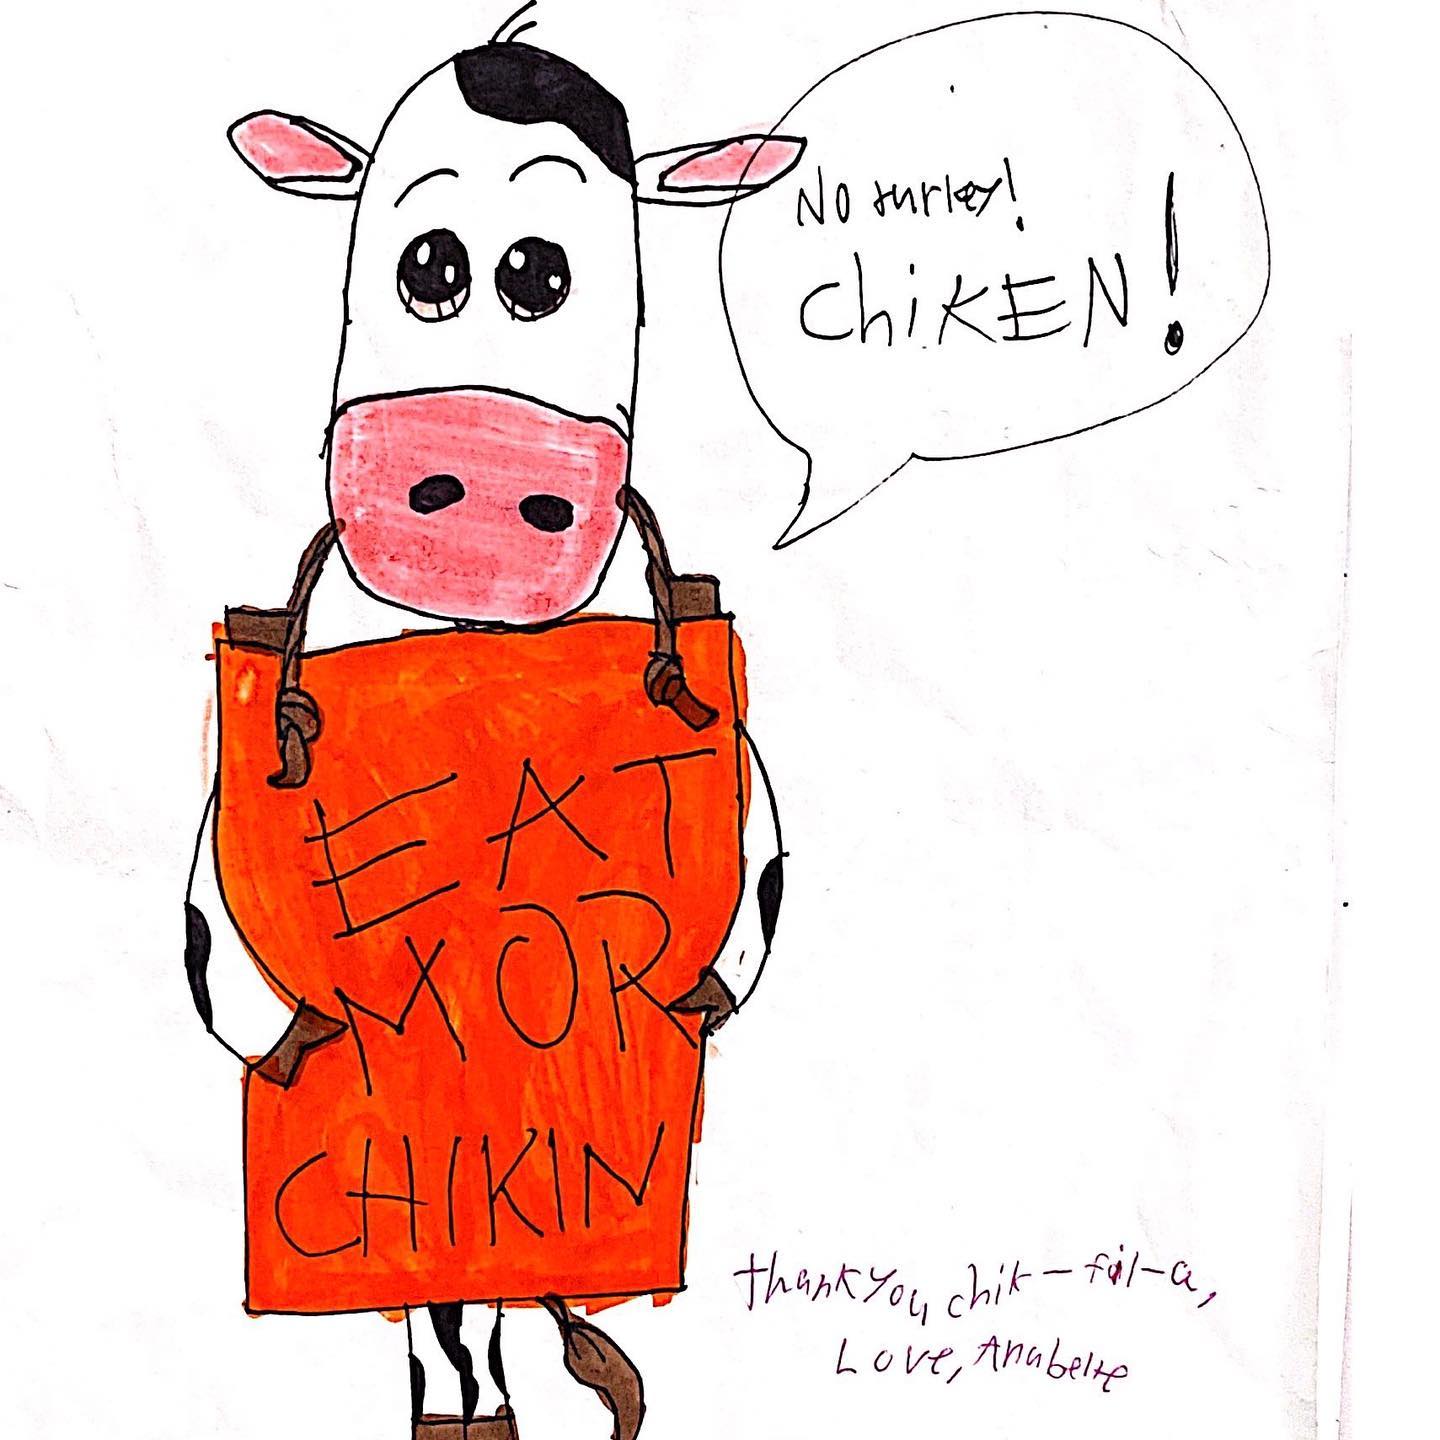 No turkey!
ChiKEN!
EAT
MOR
CHIKIN
thank you chik-fil-a,
Love, Anabelle